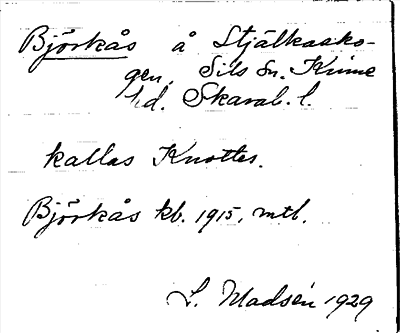 Björkås å Stjälkasko-
gen, Sils sn. Kinne
hd. Skarab. l.
kallas Knottes.
Björkås kb. 1915, mtl.
L. Madsén 1929